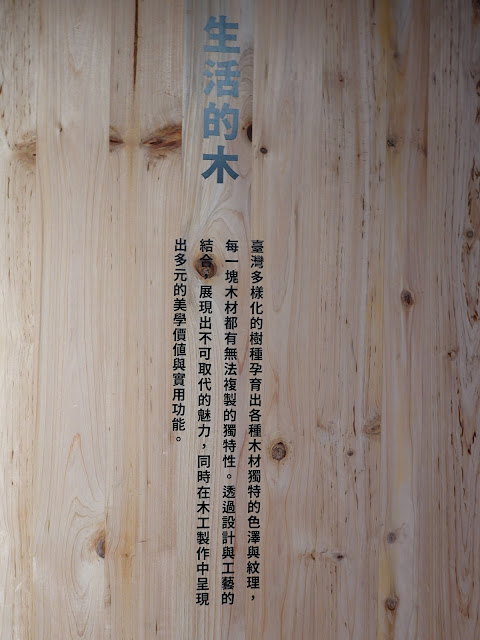 生活的木
臺灣多樣化的樹種孕育出各種木材獨特的色澤與紋理，
每一塊木材都有無法複製的獨特性。透過設計與工藝的
結合，展現出不可取代的魅力，同時在木工製作中呈現
出多元的美學價值與實用功能。